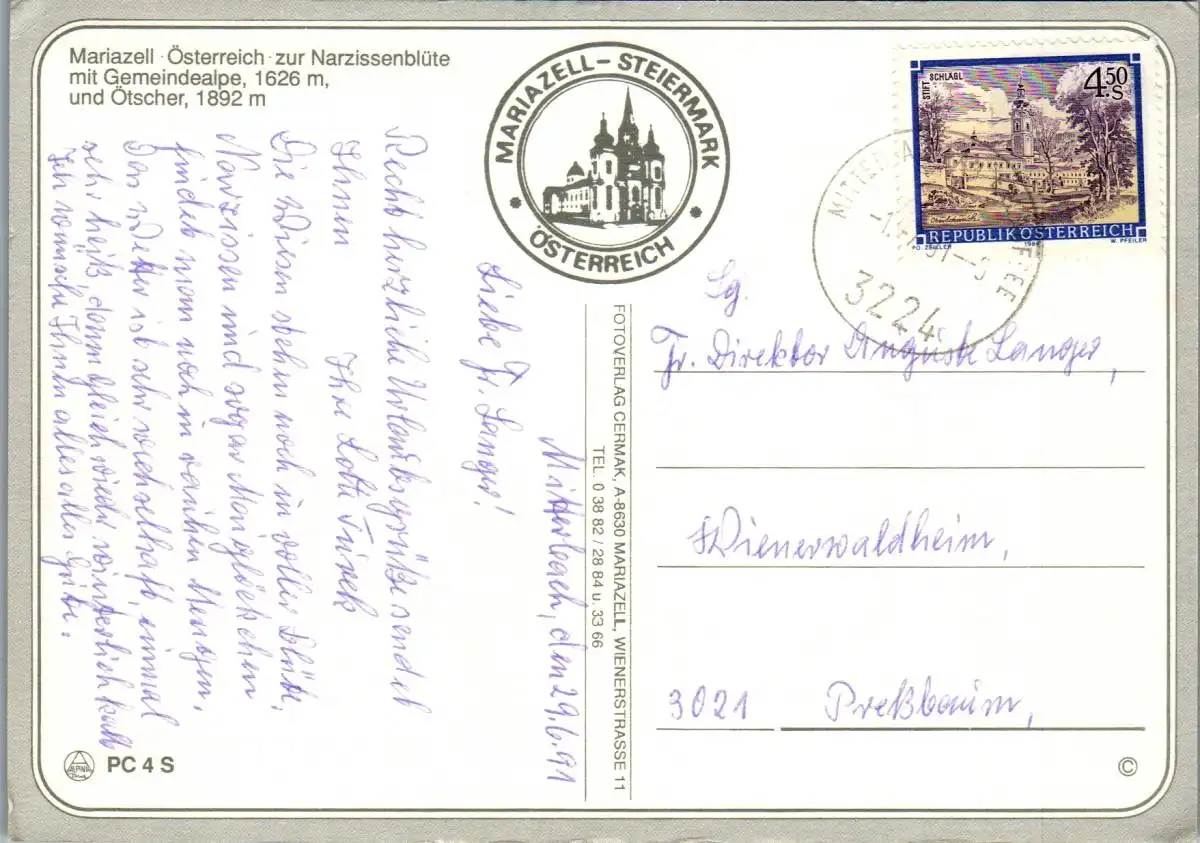 Mariazell · Österreich · zur Narzissenblüte
mit Gemeindealpe, 1626 m,
und Ötscher, 1892 m
MARIAZELL – STEIERMARK
* ÖSTERREICH *
STIFT SCHLÄGL
4.50 S
REPUBLIK ÖSTERREICH
W. PFEILER
3224
Mitterbach, den 29.6.91
Liebe Fr. Langer!
Recht herzliche Urlaubsgrüße sendet
Ihnen
Ihre Lotte
Die Wiesen stehn noch in voller Blüte,
Narzissen und sogar Maiglöckchen
findet man noch in rauhen Mengen.
Das Wetter ist sehr wechselhaft, einmal
sehr heiß, dann gleich wieder winterlich kalt
Ich wünsche Ihnen alles alles Gute.
FOTOVERLAG CERMAK, A-8630 MARIAZELL, WIENERSTRASSE 11
TEL. 0 38 82 / 28 84 u. 33 66
Sg.
Fr. Direktor Auguste Langer,
Wienerwaldheim,
3021 Preßbaum,
ALPINA
PC 4 S
©